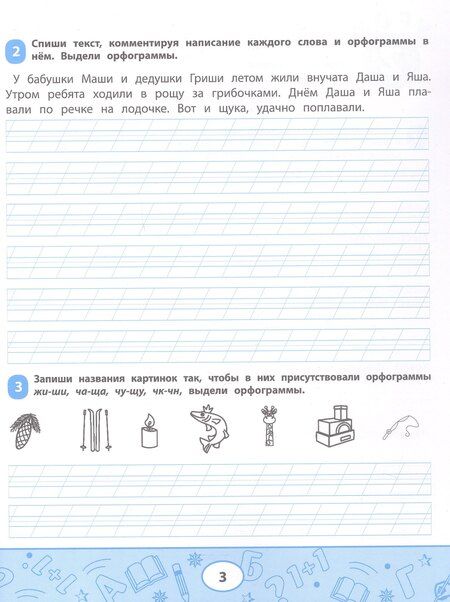 2 Спиши текст, комментируя написание каждого слова и орфограммы в
нём. Выдели орфограммы.
У бабушки Маши и дедушки Гриши летом жили внучата Даша и Яша.
Утром ребята ходили в рощу за грибочками. Днём Даша и Яша пла-
вали по речке на лодочке. Вот и щука, удачно поплавали.
3 Запиши названия картинок так, чтобы в них присутствовали орфограммы
жи-ши, ча-ща, чу-щу, чк-чн, выдели орфограммы.
1+1 А Б 2+1 Г
3